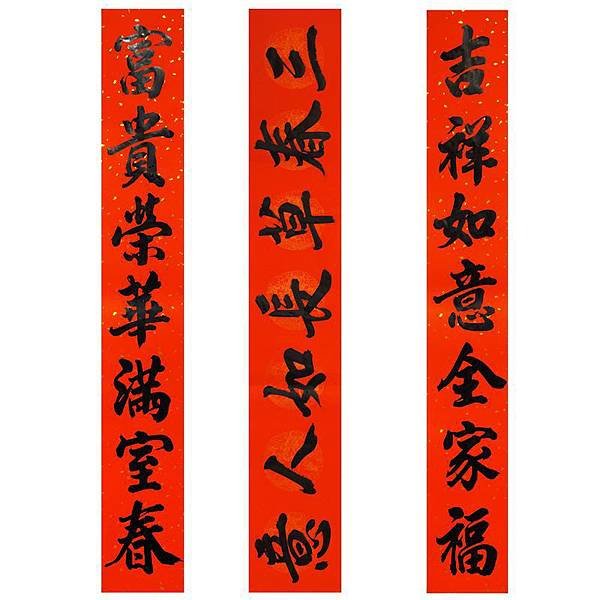 吉祥如意全家福
三春草長如人意
富貴榮華滿室春